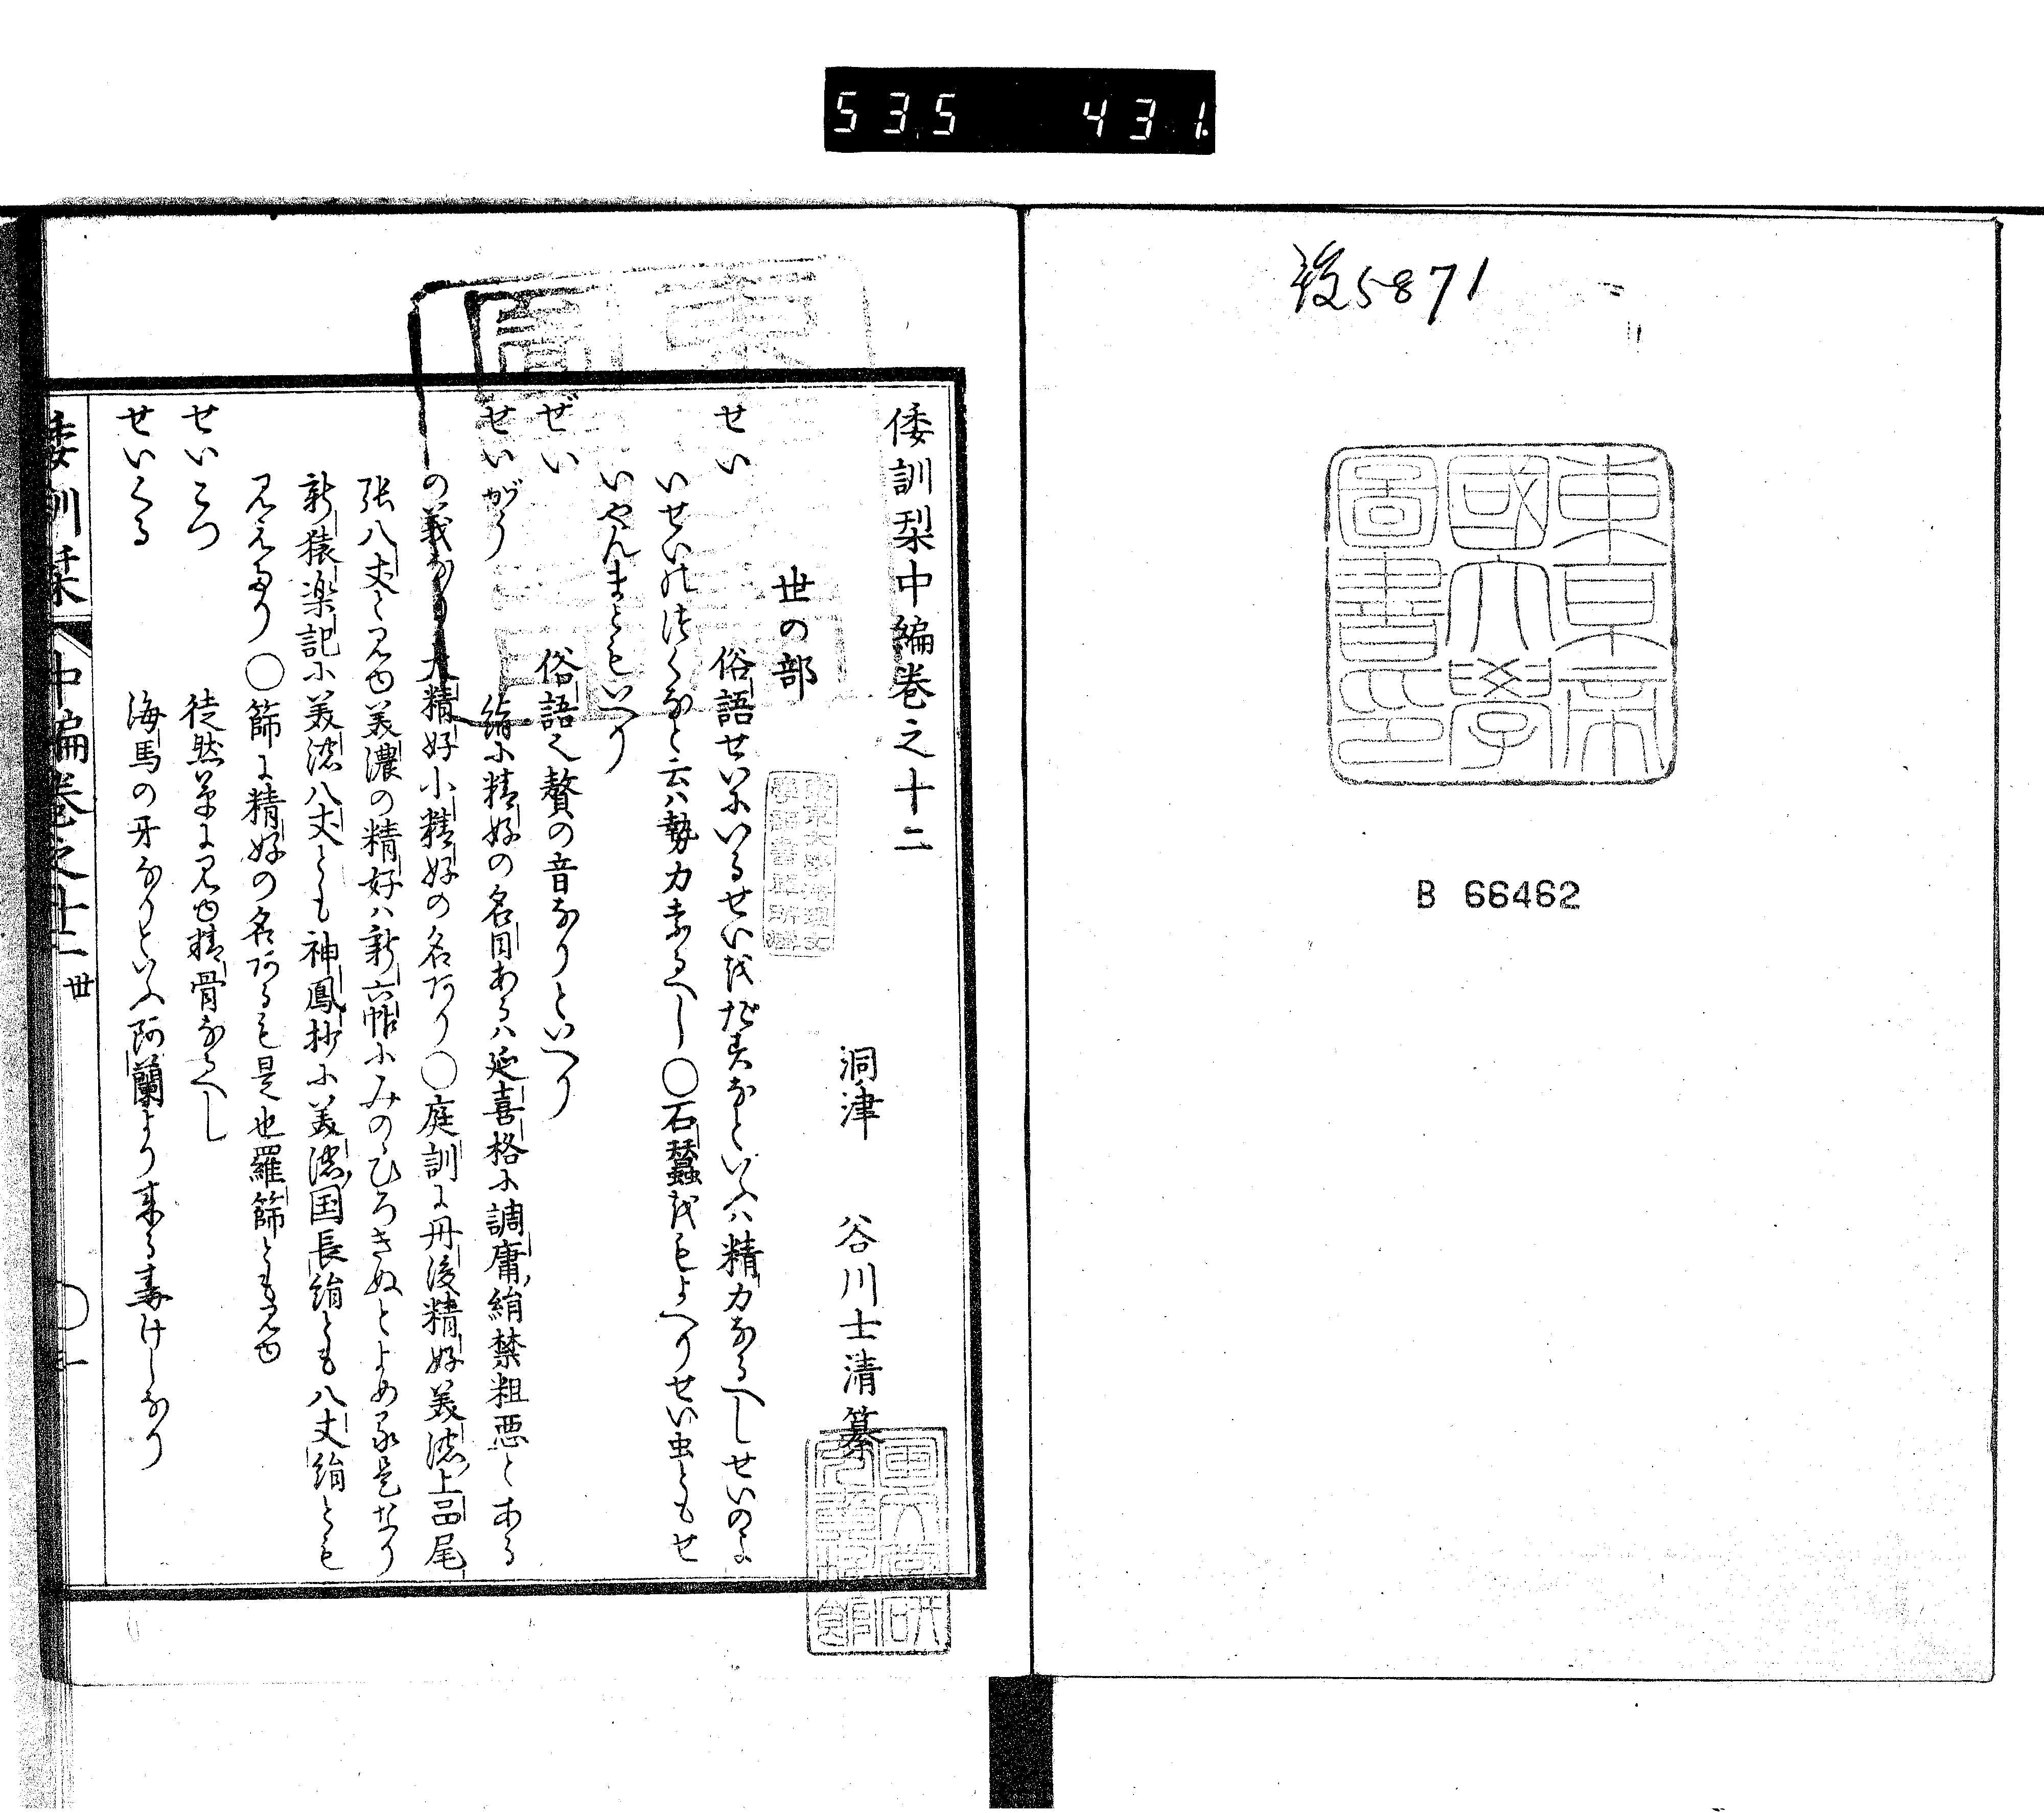 535 431
設5871
東京帝國大學圖書印
B 66462
倭訓栞中編巻之十二
洞津 谷川士清纂
世の部
せい 俗語せいにいるせいをだすなといふハ精力なるへしせいのよ
いせいのほくなと云ハ勢力なるへし〇石蠶をもよへりせい虫ともせ
いやんまともいへり
ぜい 俗語之贅の音なりといへり
せいがう 絹に精好の名目あるハ延喜格に調庸絹禁粗悪とある
の義なり大精好小精好の名あり〇庭訓に丹後精好美濃上品尾
張八丈と見ゆ美濃の精好ハ新六帖にみのゝひろきぬとよめる是なり
新猿楽記に美濃八丈とも神鳳抄に美濃国長絹とも八丈絹とも
見えたり〇篩に精好の名あるも是也羅篩とも見ゆ
せいこつ 徒然草に見ゆ精骨なるへし
せいくる 海馬の牙なりといふ阿蘭より来る毒けしなり
倭訓栞 中編巻之十二 世 〇 一